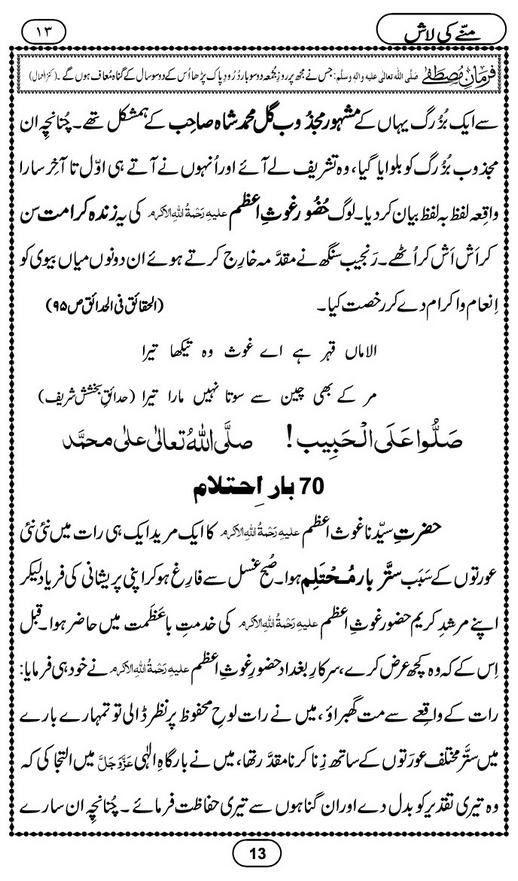 منّے کی لاش
١٣
فرمانِ مُصطَفٰے صَلَّی اللہ تعالٰی علیہ والہٖ وسلَّم: جس نے مجھ پر روزِ جُمُعہ دو سو بار دُرُود پاک پڑھا اُس کے دو سو سال کے گناہ مُعاف ہوں گے۔ (کنزالعمال)
سے ایک بُزُرگ یہاں کے مشہور مجذوب گل محمد شاہ صاحِب کے ہمشکل تھے۔ چُنانچِہ ان
مجذوب بُزُرگ کو بلوایا گیا، وہ تشریف لے آئے اور اُنہوں نے آتے ہی اوّل تا آخِر سارا
واقِعہ لفظ بہ لفظ بیان کر دیا۔ لوگ حُضُور غوثِ اعظم علیہ رَحْمَۃُ اللہِ الاکرم کی یہ زندہ کرامت سن
کر اَش اَش کر اُٹھے۔ رَنجیب سنگھ نے مقدَّمہ خارِج کرتے ہوئے ان دونوں میاں بیوی کو
اِنعام و اکرام دے کر رخصت کیا۔ (الحقائق فی الحدائق ص۹۵)
الاماں قہر ہے اے غوث وہ تیکھا تیرا
مر کے بھی چین سے سوتا نہیں مارا تیرا (حدائقِ بخشش شریف)
صَلُّوا عَلَى الْحَبِيب! صلَّى اللهُ تعالى على محمَّد
70 بار اِحتلام
حضرتِ سیِّدنا غوثِ اعظم علیہ رَحْمَۃُ اللہِ الاکرم کا ایک مرید ایک ہی رات میں نئی نئی
عورتوں کے سَبَب ستَّر بار مُحتَلِم ہوا۔ صبح غسل سے فارِغ ہو کر اپنی پریشانی کی فریاد لیکر
اپنے مرشِدِ کریم حضور غوثِ اعظم علیہ رَحْمَۃُ اللہِ الاکرم کی خدمتِ باعَظَمت میں حاضِر ہوا۔ قبل
اِس کے کہ وہ کچھ عرض کرے، سرکارِ بغداد حضورِ غوثِ اعظم علیہ رَحْمَۃُ اللہِ الاکرم نے خود ہی فرمایا:
رات کے واقِعے سے مت گھبراؤ، میں نے رات لوحِ محفوظ پر نظر ڈالی تو تمہارے بارے
میں ستَّر مختلف عورَتوں کے ساتھ زِنا کرنا مقدَّر تھا، میں نے بارگاہِ الٰہی عَزَّوَجَلَّ میں التجا کی کہ
وہ تیری تقدیر کو بدل دے اور ان گناہوں سے تیری حفاظت فرمائے۔ چُنانچِہ ان سارے
13